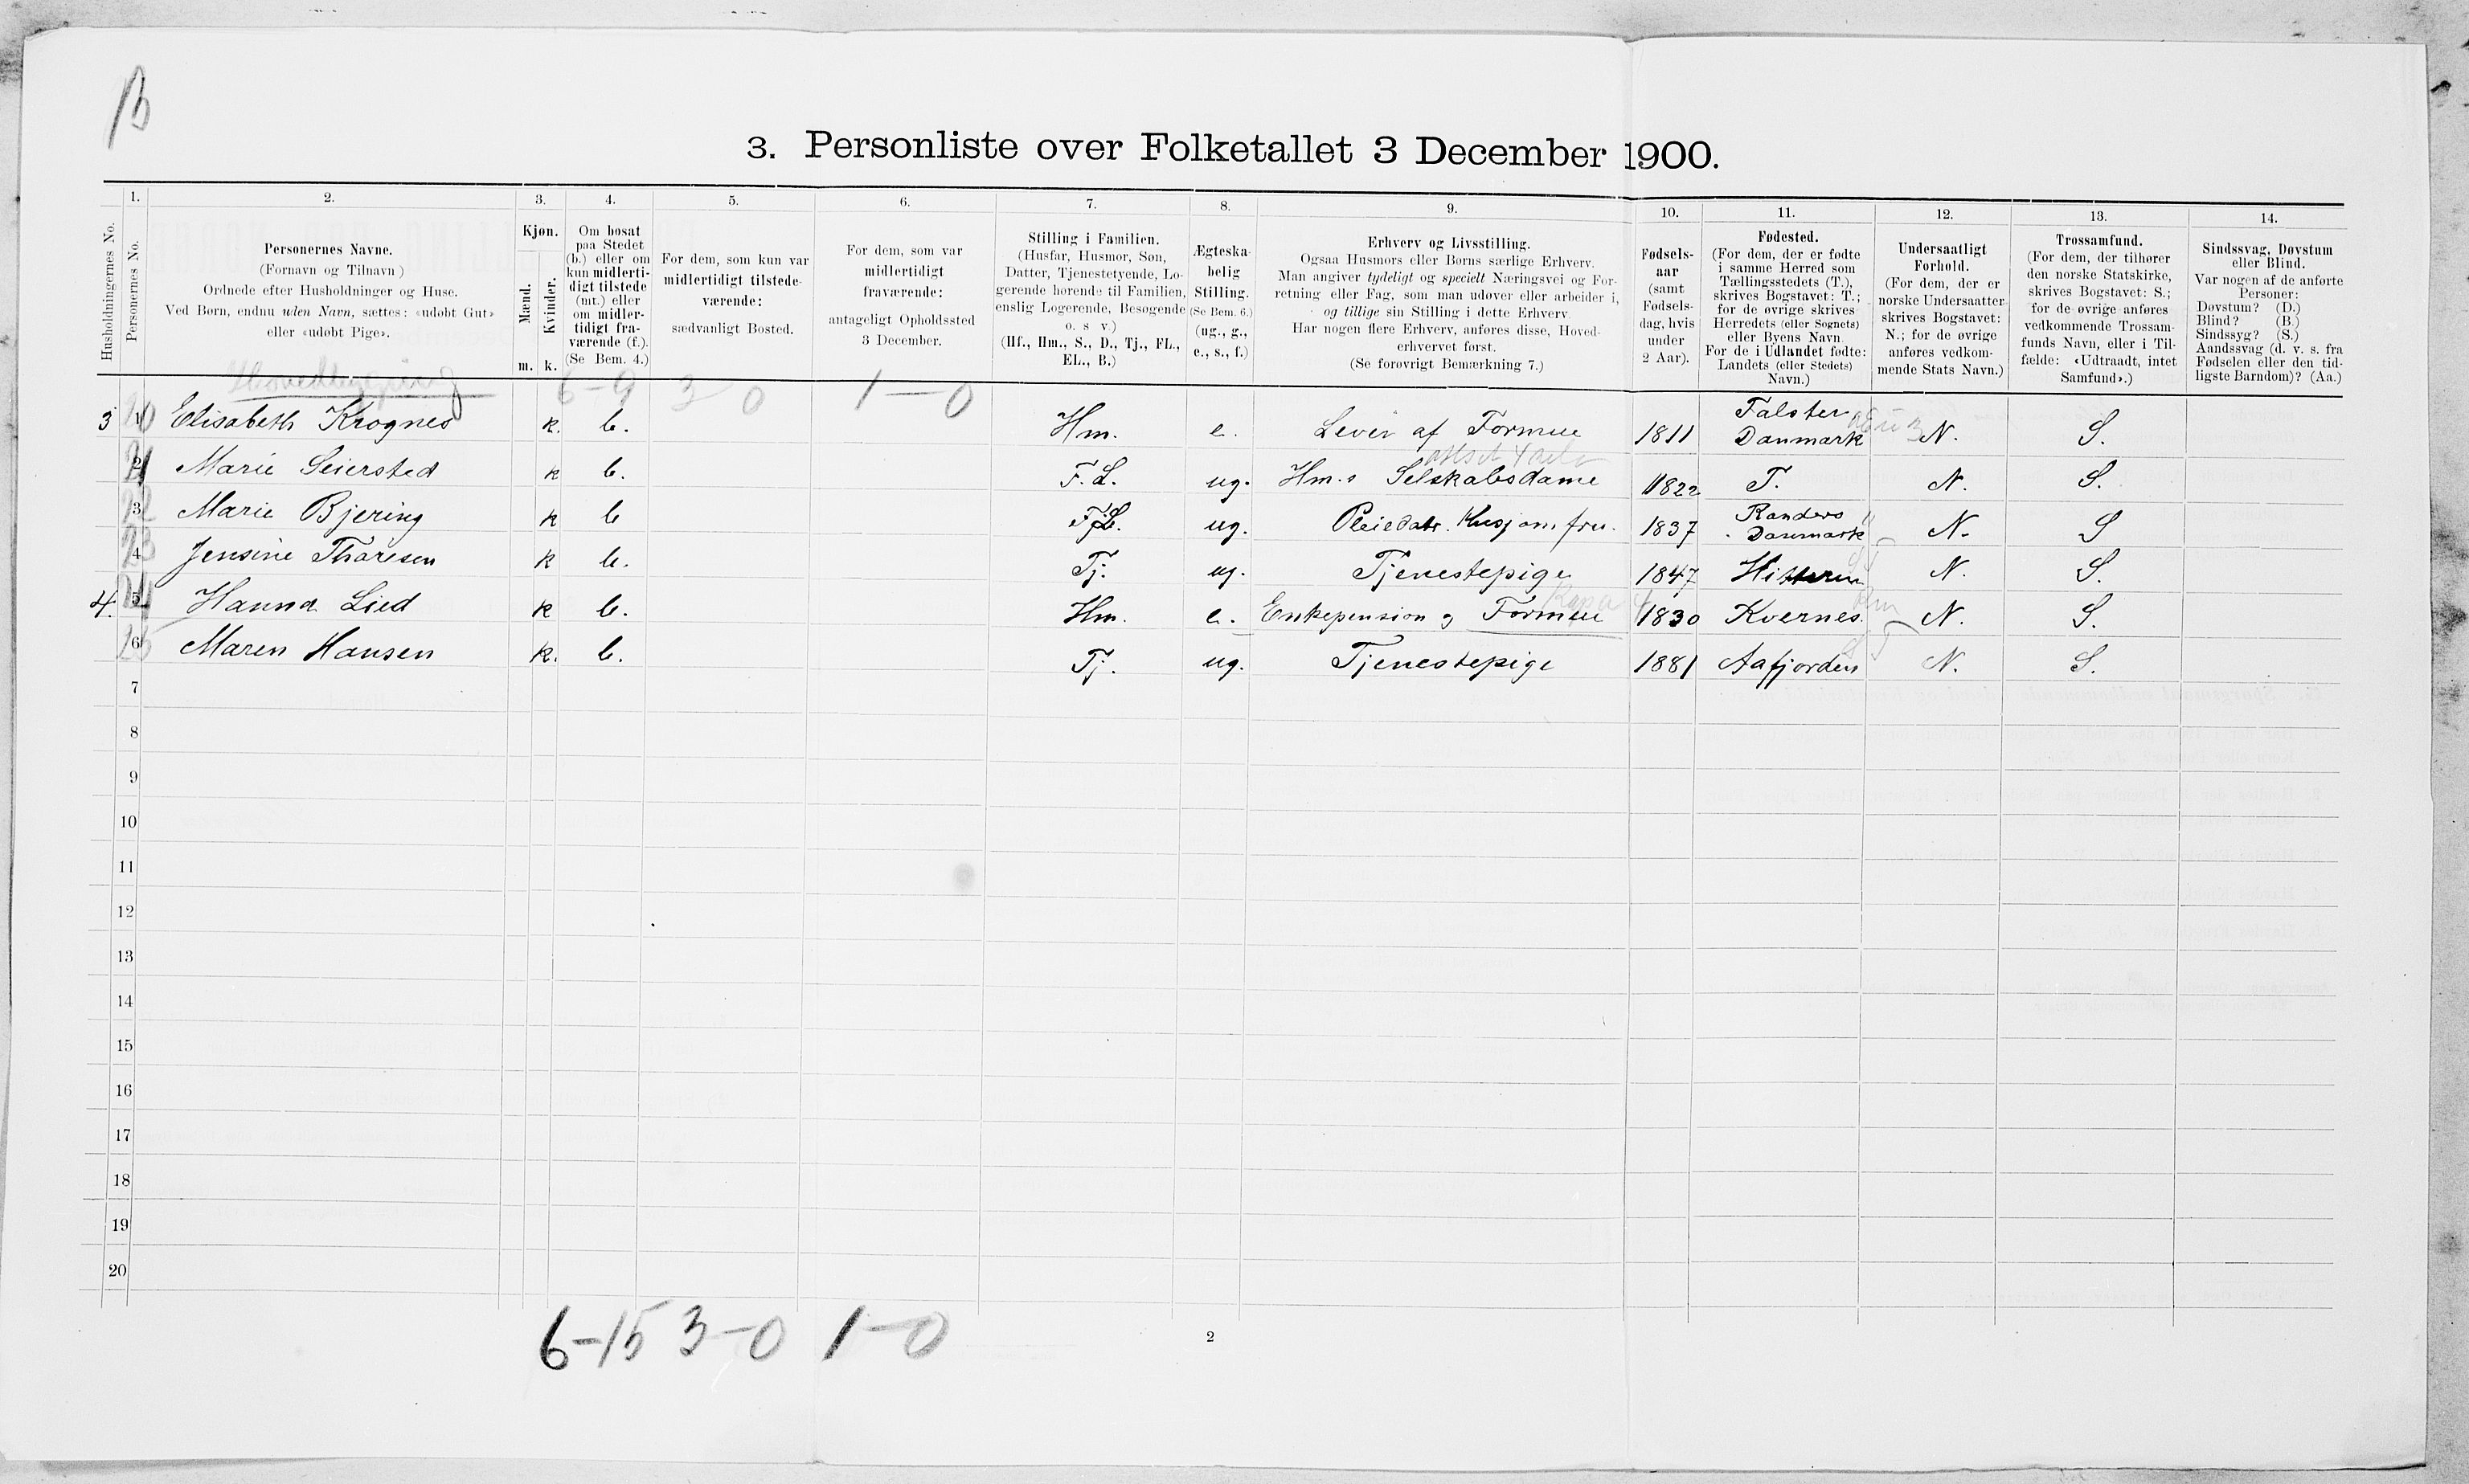 B
3. Personliste over Folketallet 3 December 1900.
1. 2. 3. 4. 5. 6. 7. 8. 9. 10. 11. 12. 13. 14.
Husholdningernes No.
Personernes No.
Personernes Navne.
(Fornavn og Tilnavn)
Ordnede efter Husholdninger og Huse.
Ved Børn, endnu uden Navn, sættes: «udøbt Gut»
eller «udøbt Pige».
Kjøn.
Mænd.
Kvinder.
m. k.
Om bosat
paa Stedet
(b.) eller om
kun midlerti-
digt tilstede
(mt.) eller
om midler-
tidigt fra-
værende (f.).
(Se Bem. 4.)
For dem, som kun var
midlertidigt tilstede-
værende:
sædvanligt Bosted.
For dem, som var
midlertidigt
fraværende:
antageligt Opholdssted
3 December.
Stilling i Familien.
(Husfar, Husmor, Søn,
Datter, Tjenestetyende, Lo-
gerende hørende til Familien,
enslig Logerende, Besøgende
o. s v.)
(Hf., Hm., S., D., Tj., FL.,
EL., B.)
Ægteska-
belig
Stilling.
(Se Bem. 6.)
(ug., g.,
e., s., f.)
Erhverv og Livsstilling.
Ogsaa Husmors eller Børns særlige Erhverv.
Man angiver tydeligt og specielt Næringsvei og For-
retning eller Fag, som man udøver eller arbeider i,
og tillige sin Stilling i dette Erhverv.
Har nogen flere Erhverv, anføres disse, Hoved-
erhvervet først.
(Se forøvrigt Bemærkning 7.)
Fødsels-
aar
(samt
Fødsels-
dag, hvis
under
2 Aar).
Fødested.
(For dem, der er fødte
i samme Herred som
Tællingsstedets (T.),
skrives Bogstavet: T.;
for de øvrige skrives
Herredets (eller Sognets)
eller Byens Navn.
For de i Udlandet fødte:
Landets (eller Stedets)
Navn.)
Undersaatligt
Forhold.
(For dem, der er
norske Undersaatter
skrives Bogstavet:
N.; for de øvrige
anføres vedkom-
mende Stats Navn.)
Trossamfund.
(For dem, der tilhører
den norske Statskirke,
skrives Bogstavet: S.;
for de øvrige anføres
vedkommende Trossam-
funds Navn, eller i Til-
fælde: «Udtraadt, intet
Samfund».)
Sindssvag, Døvstum
eller Blind.
Var nogen af de anførte
Personer:
Døvstum? (D.)
Blind? (B.)
Sindssyg? (S.)
Aandssvag (d. v. s. fra
Fødselen eller den tid-
ligste Barndom)? (Aa.)
Hovedbygning 6-9 3 0 1-0
3 1 20 Elisabeth Krognes k. b. Hm. e. Lever af Formue 1811 Falster Danmark N. S.
2 21 Marie Seiersted k b. F.L. ug. Hm.s Selskabsdame 1822 T. N. S.
3 22 Marie Bjering k b F.L. ug. Pleiedatr. Husjomfru. 1837 Randers Danmark N. S
4 23 Jensine Thoresen k b. Tj. ug. Tjenestepige 1847 Hitteren N. S.
4. 5 24 Hanna Lied k b. Hm. e. Enkepension og Formue 1830 Kvernes. N. S.
6 25 Maren Hansen k. b. Tj. ug. Tjenestepige 1881 Aafjorden N. S.
7
8
9
10
11
12
13
14
15
16
17
18
19
20
6-15 3-0 1-0
2